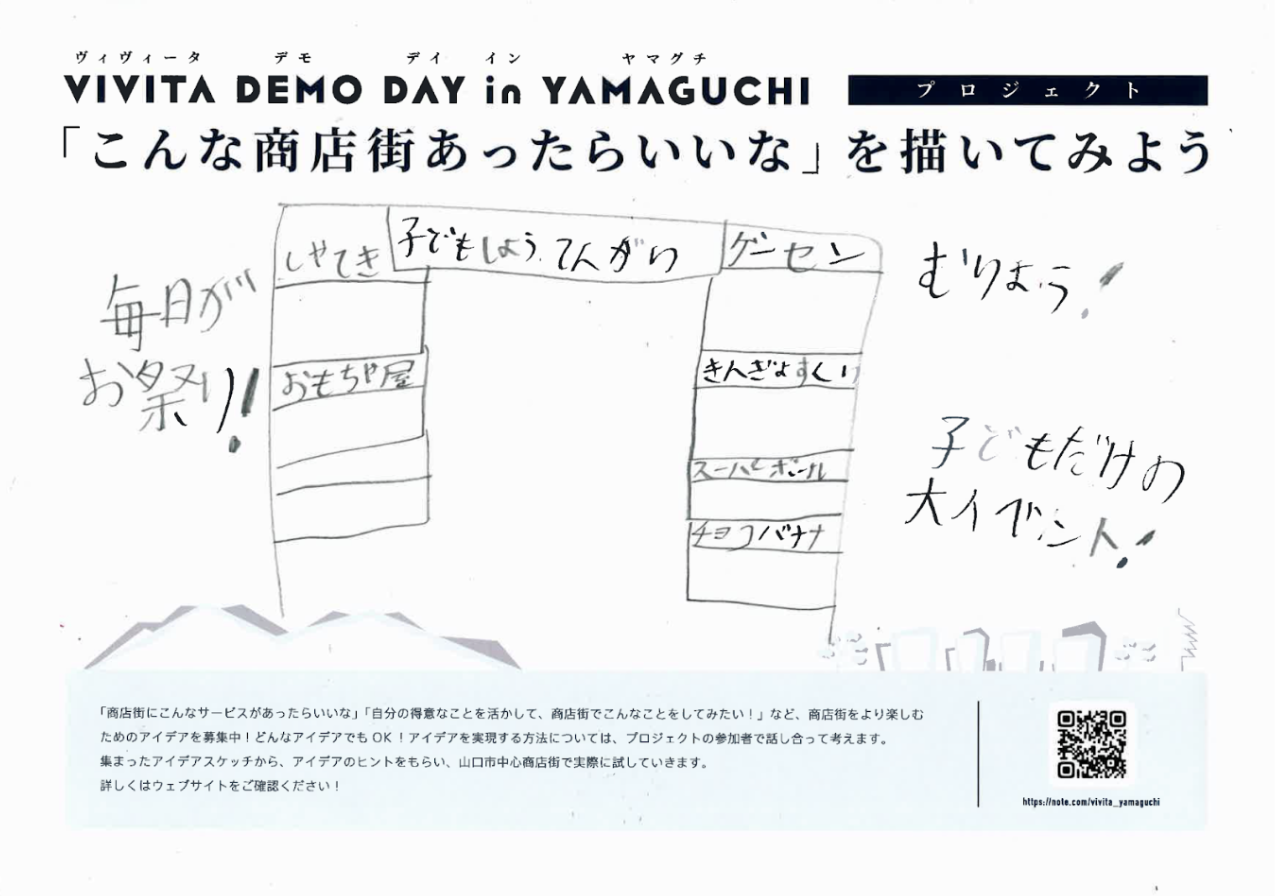 ヴィヴィータ デモ デイ イン ヤマグチ
VIVITA DEMO DAY in YAMAGUCHI プロジェクト
「こんな商店街あったらいいな」を描いてみよう
しゃてき 子どもしょうてんがい ゲーセン
毎日が
お祭り!
むりょう!
おもちゃ屋
きんぎょすくい
スーパーボール
チョコバナナ
子どもだけの
大イベント!
「商店街にこんなサービスがあったらいいな」「自分の得意なことを活かして、商店街でこんなことをしてみたい！」など、商店街をより楽しむ
ためのアイデアを募集中！どんなアイデアでも OK！アイデアを実現する方法については、プロジェクトの参加者で話し合って考えます。
集まったアイデアスケッチから、アイデアのヒントをもらい、山口市中心商店街で実際に試していきます。
詳しくはウェブサイトをご確認ください！
https://note.com/vivita_yamaguchi